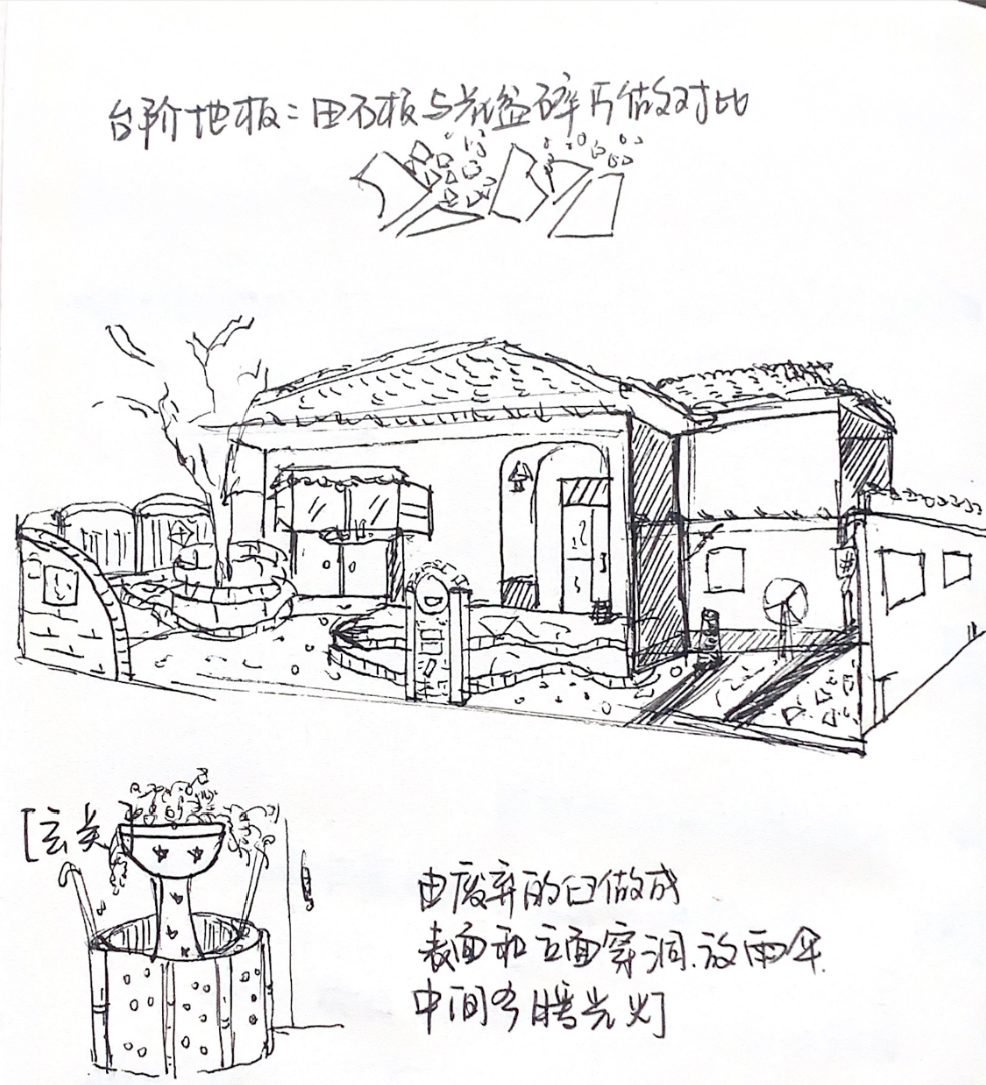 台阶地板：由石板与花盆碎片做对比
[玄关]
由废弃的臼做成
表面和立面穿洞.放雨伞.
中间为暖光灯